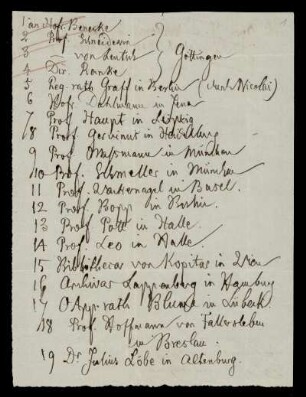 1 an Hofr. Benecke
2 Prof Schneidewin
3 von Leutsch
4 Dir. Ranke
Göttingen
5 Reg. rath Graff in Berlin (durch Nicolai)
6 Hofr. Dahlmann in Jena
7 Prof Haupt in Leipzig
8 Prof Gervinus in Heidelberg
9 Prof Massmann in München
10 Prof. Schmeller in München
11 Prof. Wackernagel in Basel.
12 Prof Bopp in Berlin.
13 Prof Pott in Halle.
14 Prof. Leo in Halle.
15 Bibliothecar von Kopitar in Wien
16 Archivar Lappenberg in Hamburg
17 OApp. rath Blume in Lübeck
18 Prof Hoffmann von Fallersleben
in Breslau.
19 Dr. Julius Löbe in Altenburg.